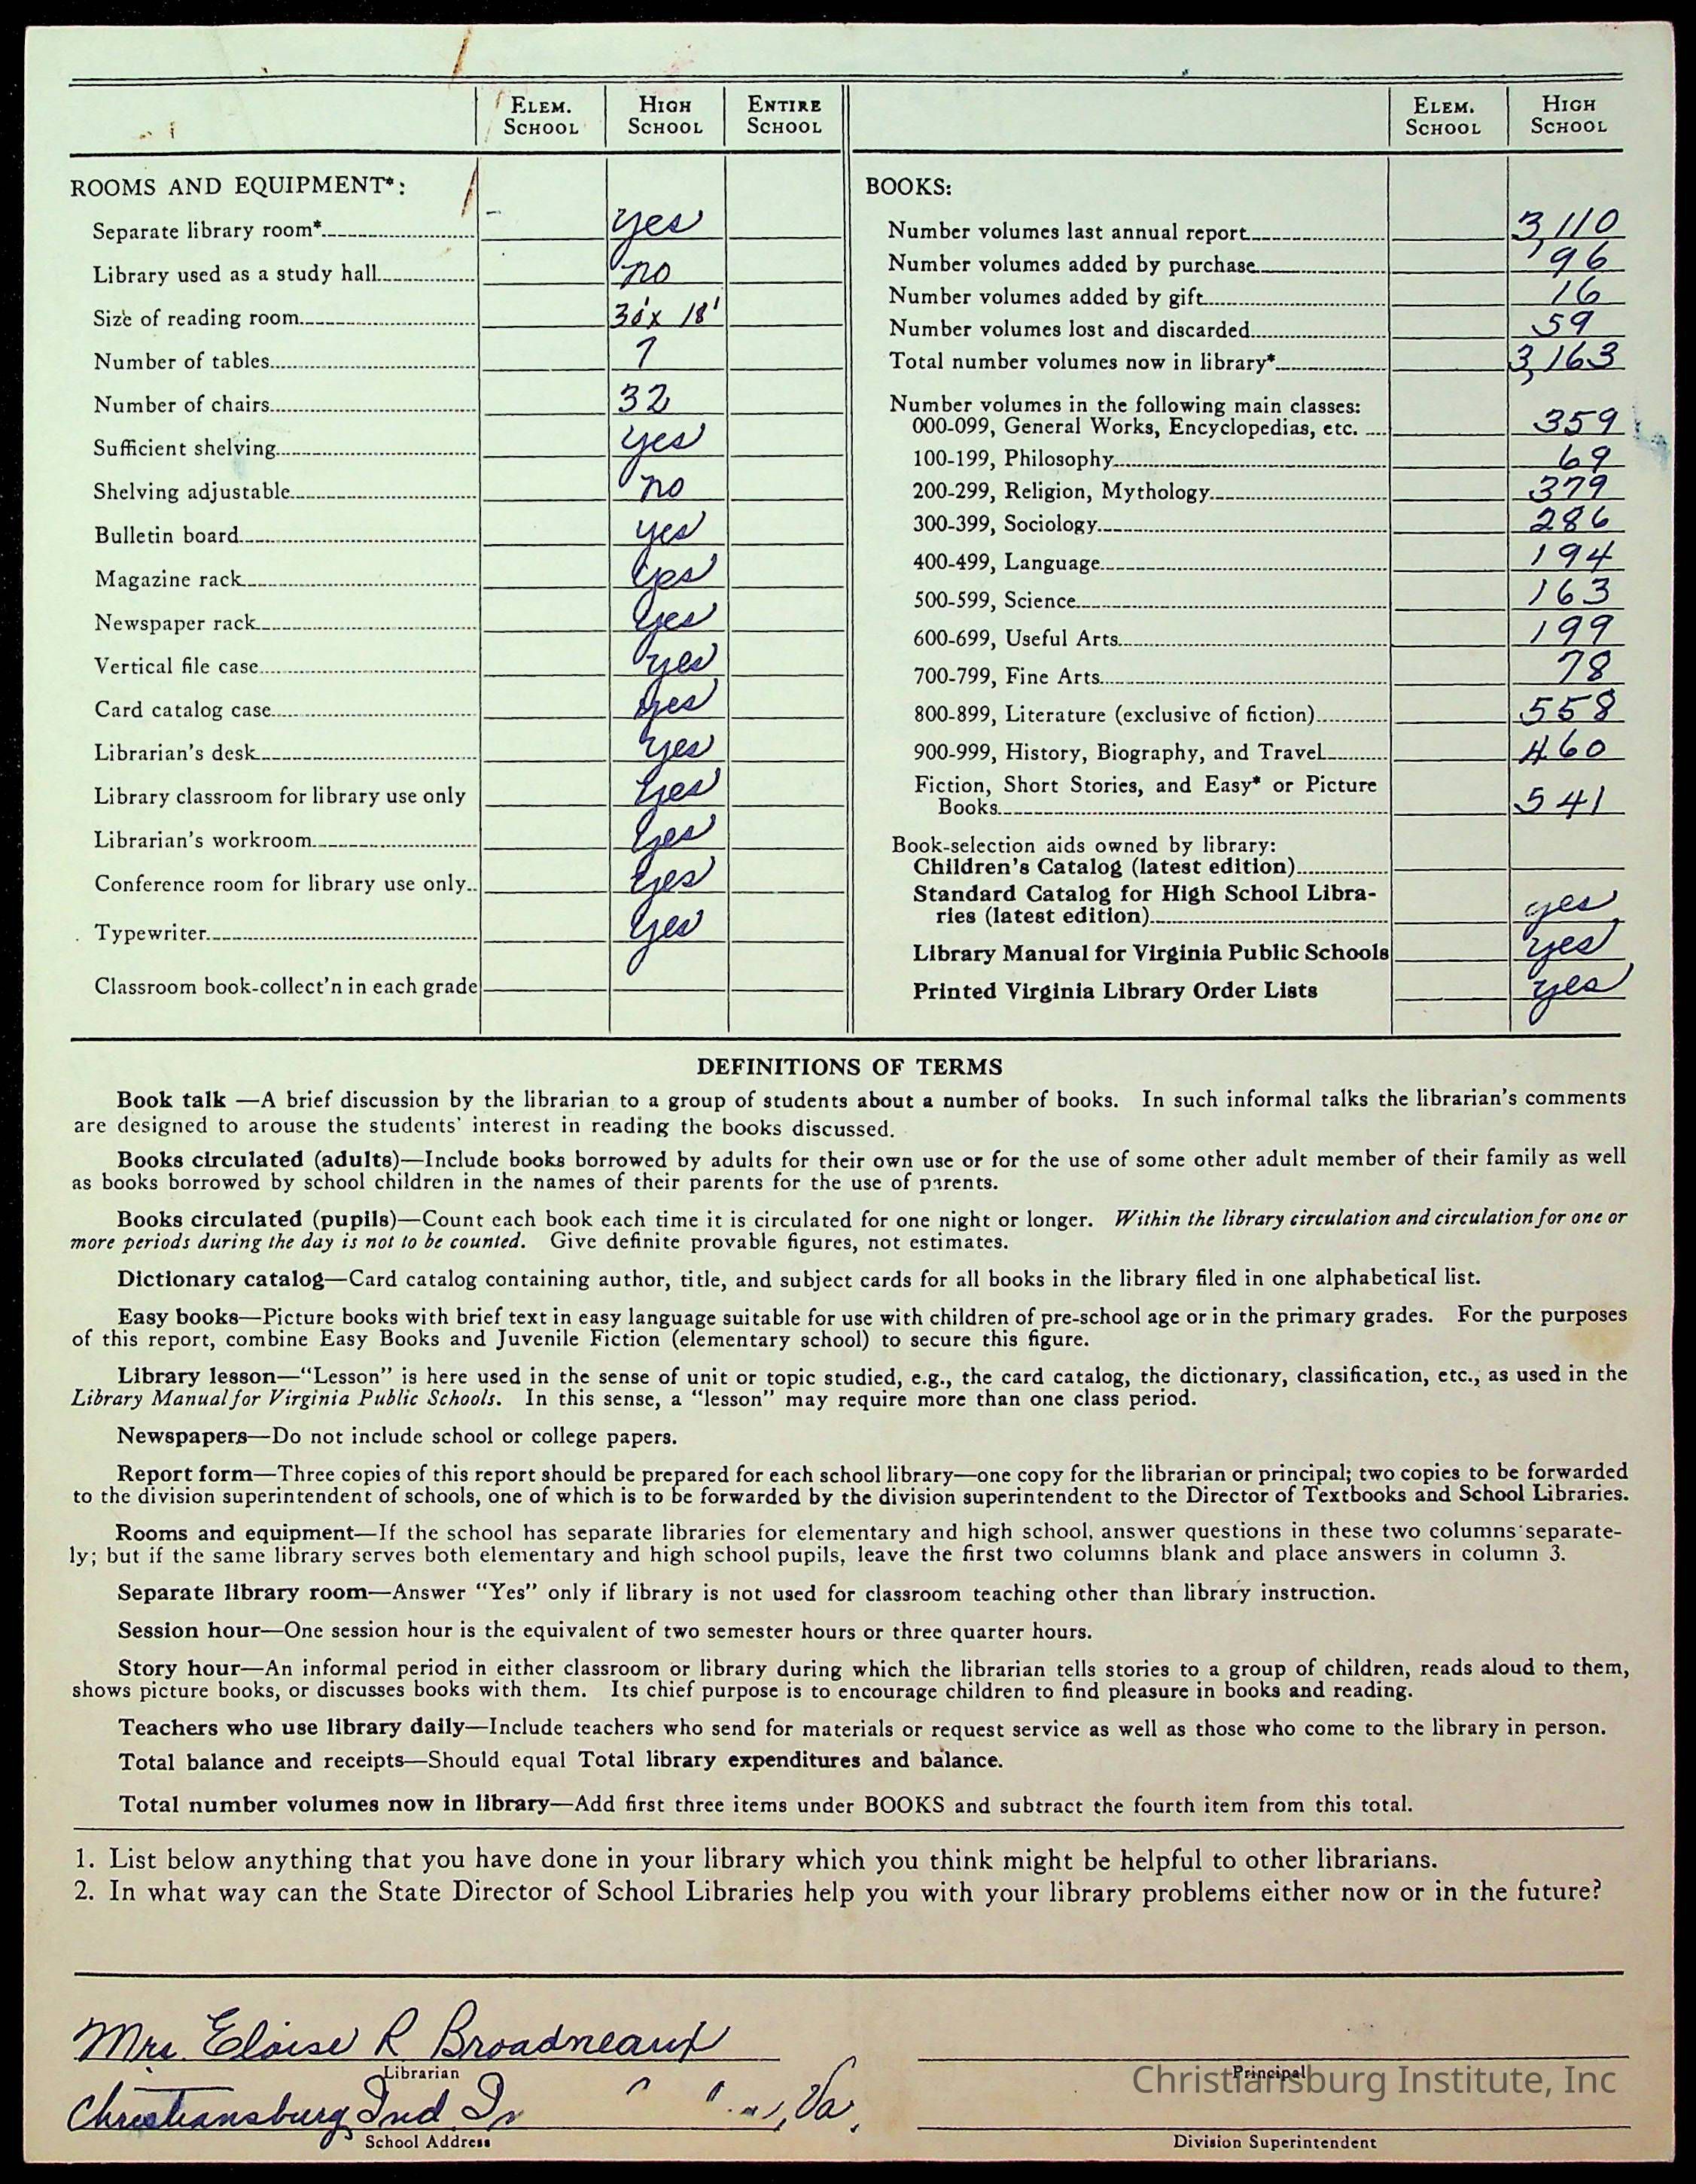 ELEM. SCHOOL HIGH SCHOOL ENTIRE SCHOOL
ROOMS AND EQUIPMENT*:
Separate library room* yes
Library used as a study hall no
Size of reading room 30'x 18'
Number of tables 7
Number of chairs 32
Sufficient shelving yes
Shelving adjustable no
Bulletin board yes
Magazine rack yes
Newspaper rack yes
Vertical file case yes
Card catalog case yes
Librarian's desk yes
Library classroom for library use only yes
Librarian's workroom yes
Conference room for library use only yes
Typewriter yes
Classroom book-collect'n in each grade
ELEM. SCHOOL HIGH SCHOOL
BOOKS:
Number volumes last annual report 3,110
Number volumes added by purchase 96
Number volumes added by gift 16
Number volumes lost and discarded 59
Total number volumes now in library* 3,163
Number volumes in the following main classes:
000-099, General Works, Encyclopedias, etc. 359
100-199, Philosophy 69
200-299, Religion, Mythology 379
300-399, Sociology 286
400-499, Language 194
500-599, Science 163
600-699, Useful Arts 199
700-799, Fine Arts 78
800-899, Literature (exclusive of fiction) 558
900-999, History, Biography, and Travel 460
Fiction, Short Stories, and Easy* or Picture
Books 541
Book-selection aids owned by library:
Children's Catalog (latest edition)
Standard Catalog for High School Libra-
ries (latest edition) yes
Library Manual for Virginia Public Schools yes
Printed Virginia Library Order Lists yes
DEFINITIONS OF TERMS
Book talk —A brief discussion by the librarian to a group of students about a number of books. In such informal talks the librarian's comments
are designed to arouse the students' interest in reading the books discussed.
Books circulated (adults)—Include books borrowed by adults for their own use or for the use of some other adult member of their family as well
as books borrowed by school children in the names of their parents for the use of parents.
Books circulated (pupils)—Count each book each time it is circulated for one night or longer. Within the library circulation and circulation for one or
more periods during the day is not to be counted. Give definite provable figures, not estimates.
Dictionary catalog—Card catalog containing author, title, and subject cards for all books in the library filed in one alphabetical list.
Easy books—Picture books with brief text in easy language suitable for use with children of pre-school age or in the primary grades. For the purposes
of this report, combine Easy Books and Juvenile Fiction (elementary school) to secure this figure.
Library lesson—"Lesson" is here used in the sense of unit or topic studied, e.g., the card catalog, the dictionary, classification, etc., as used in the
Library Manual for Virginia Public Schools. In this sense, a "lesson" may require more than one class period.
Newspapers—Do not include school or college papers.
Report form—Three copies of this report should be prepared for each school library—one copy for the librarian or principal; two copies to be forwarded
to the division superintendent of schools, one of which is to be forwarded by the division superintendent to the Director of Textbooks and School Libraries.
Rooms and equipment—If the school has separate libraries for elementary and high school, answer questions in these two columns separate-
ly; but if the same library serves both elementary and high school pupils, leave the first two columns blank and place answers in column 3.
Separate library room—Answer "Yes" only if library is not used for classroom teaching other than library instruction.
Session hour—One session hour is the equivalent of two semester hours or three quarter hours.
Story hour—An informal period in either classroom or library during which the librarian tells stories to a group of children, reads aloud to them,
shows picture books, or discusses books with them. Its chief purpose is to encourage children to find pleasure in books and reading.
Teachers who use library daily—Include teachers who send for materials or request service as well as those who come to the library in person.
Total balance and receipts—Should equal Total library expenditures and balance.
Total number volumes now in library—Add first three items under BOOKS and subtract the fourth item from this total.
1. List below anything that you have done in your library which you think might be helpful to other librarians.
2. In what way can the State Director of School Libraries help you with your library problems either now or in the future?
Mrs. Eloise R Broadneaux
Librarian
Principal
Christiansburg Institute, Inc
Christiansburg Ind. " ", Va.
School Address
Division Superintendent